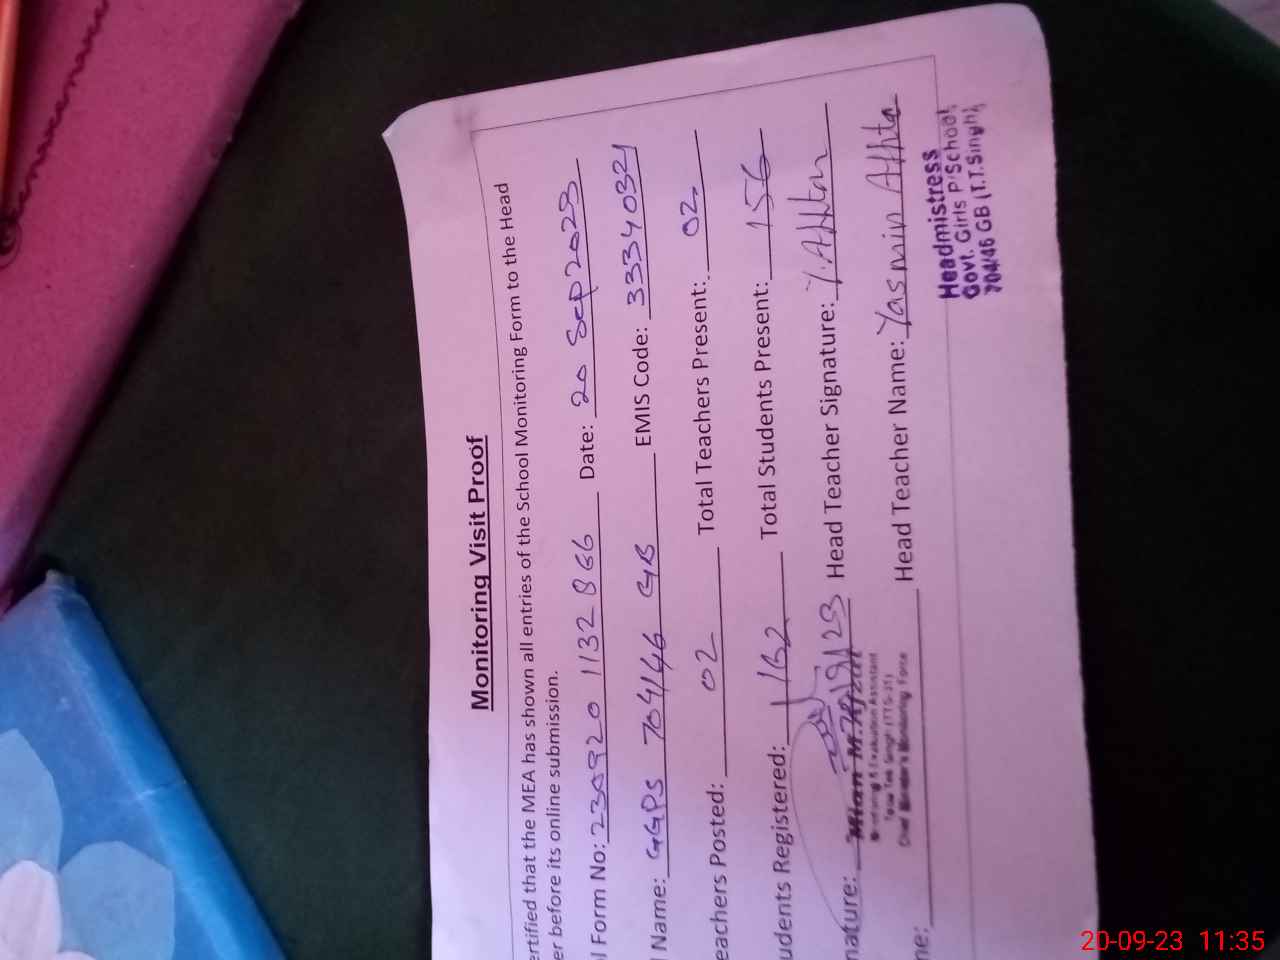 Monitoring Visit Proof
ertified that the MEA has shown all entries of the School Monitoring Form to the Head
er before its online submission.
l Form No: 230920 1132866 Date: 20 Sep 2023
l Name: GGPS 704/46 GB EMIS Code: 33340321
eachers Posted: 02 Total Teachers Present: 02
udents Registered: 162 Total Students Present: 156
nature: 20/9/23 Head Teacher Signature: Y.Akhtar
Mian M.Afzal
Monitoring & Evaluation Assistant
Toba Tek Singh (TTS-31)
Chief Minister's Monitoring Force
ne: Head Teacher Name: Yasmin Akhta
Headmistress
Govt. Girls P/School
704/46 GB (T.T.Singh)
20-09-23 11:35